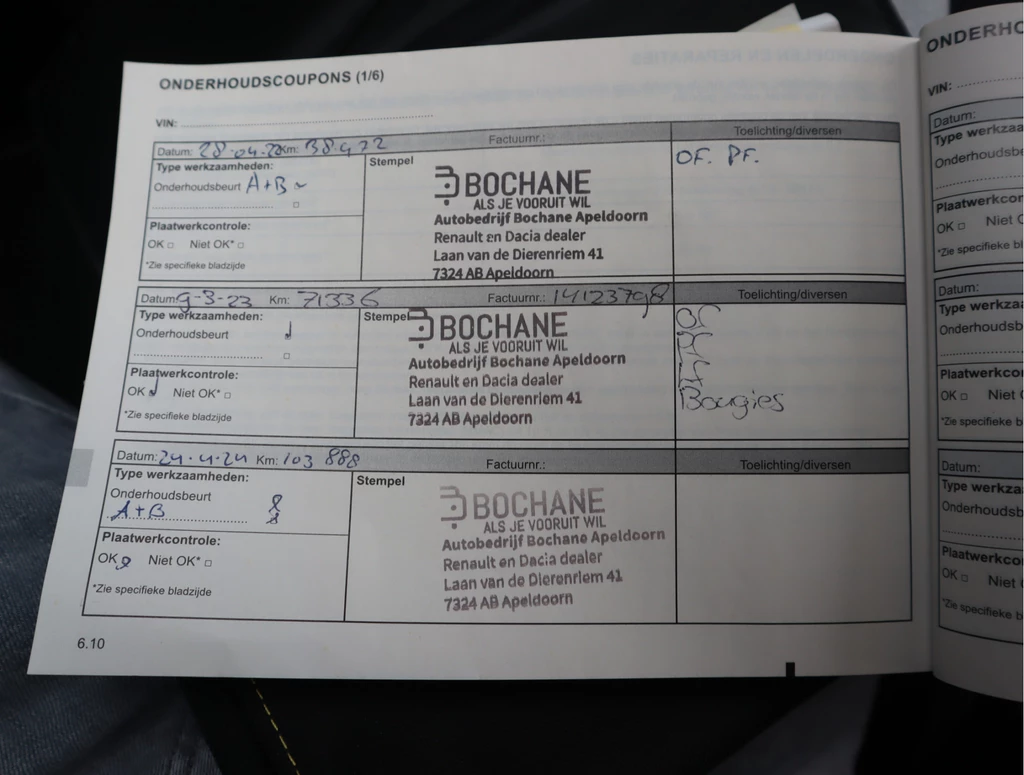 ONDERHOUDSCOUPONS (1/6)
VIN:
Datum: 28-04-22 Km: 38.972 Factuurnr.: Toelichting/diversen
Type werkzaamheden:
Onderhoudsbeurt A+B
Stempel
BOCHANE
ALS JE VOORUIT WIL
Autobedrijf Bochane Apeldoorn
Renault en Dacia dealer
Laan van de Dierenriem 41
7324 AB Apeldoorn
OF. PF.
Plaatwerkcontrole:
OK □ Niet OK* □
*Zie specifieke bladzijde
Datum: 9-3-23 Km: 71336 Factuurnr.: 14123798 Toelichting/diversen
Type werkzaamheden:
Onderhoudsbeurt
Stempel
BOCHANE
ALS JE VOORUIT WIL
Autobedrijf Bochane Apeldoorn
Renault en Dacia dealer
Laan van de Dierenriem 41
7324 AB Apeldoorn
OF
Bougies
Plaatwerkcontrole:
OK Niet OK* □
*Zie specifieke bladzijde
Datum: 24-4-24 Km: 103 888 Factuurnr.: Toelichting/diversen
Type werkzaamheden:
Onderhoudsbeurt
A+B
Stempel
BOCHANE
ALS JE VOORUIT WIL
Autobedrijf Bochane Apeldoorn
Renault en Dacia dealer
Laan van de Dierenriem 41
7324 AB Apeldoorn
Plaatwerkcontrole:
OK Niet OK* □
*Zie specifieke bladzijde
6.10
ONDERHO
VIN:
Datum:
Type werkzaa
Onderhoudsb
Plaatwerkcor
OK □ Niet O
*Zie specifieke bl
Datum:
Type werkza
Onderhoudsb
Plaatwerkco
OK □ Niet
*Zie specifieke b
Datum:
Type werkza
Onderhoudsb
Plaatwerkco
OK □ Niet
*Zie specifieke